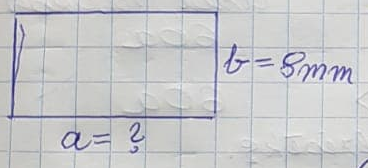 b = 8mm
a = ?